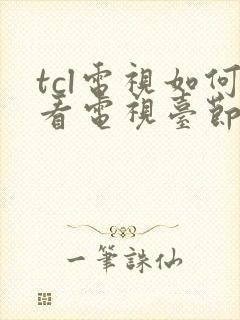 tcl電視如何
看電視臺節
一筆誅仙